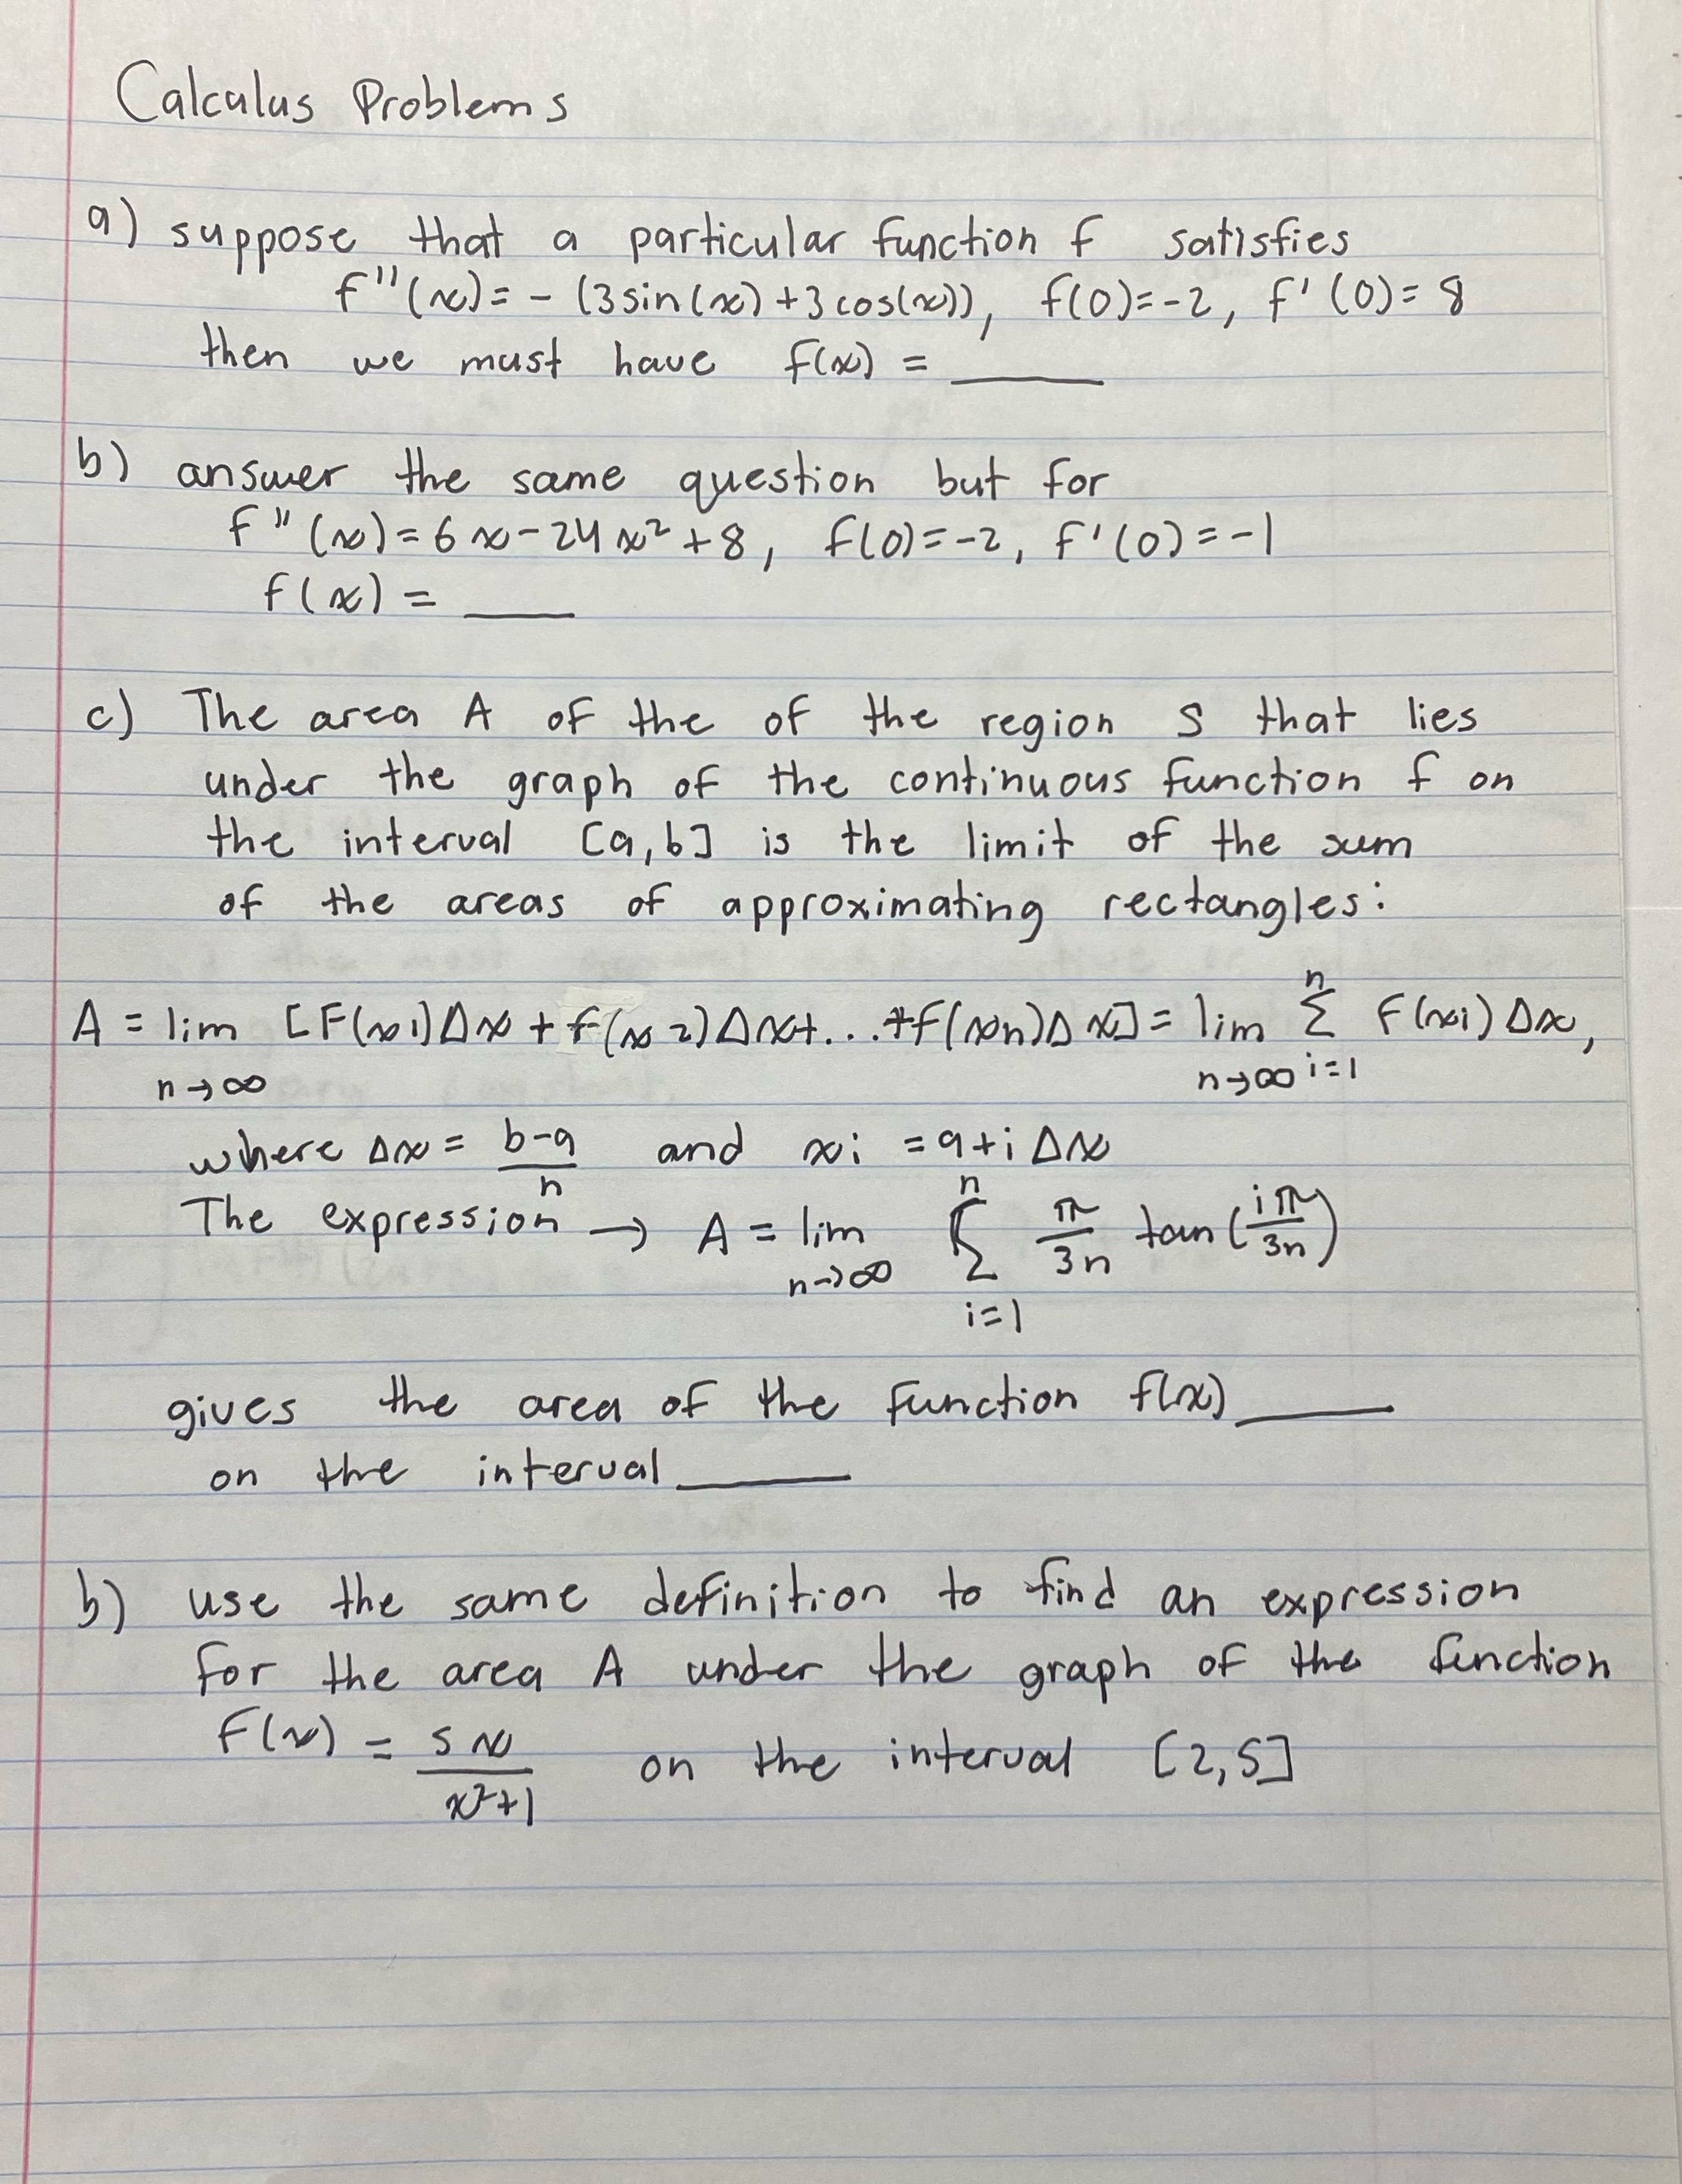 Calculus Problems
a) suppose that a particular function f satisfies
f''(x) = - (3sin(x) + 3cos(x)), f(0)=-2, f'(0)= 8
then we must have f(x) = ____
b) answer the same question but for
f''(x) = 6x - 24x² + 8, f(0)=-2, f'(0)=-1
f(x) = ____
c) The area A of the of the region S that lies
under the graph of the continuous function f on
the interval [a,b] is the limit of the sum
of the areas of approximating rectangles:
A = lim n→∞ [F(x1)Δx + f(x2)Δx+...+f(xn)Δx] = lim n→∞ n Σ i=1 F(xi)Δx,
where Δx = b-a/n and xi = a+iΔx
The expression → A = lim n→∞ n Σ i=1 π/3n tan(iπ/3n)
gives the area of the function f(x)____
on the interval____
b) use the same definition to find an expression
for the area A under the graph of the function
F(x) = 5x/x²+1 on the interval [2,5]